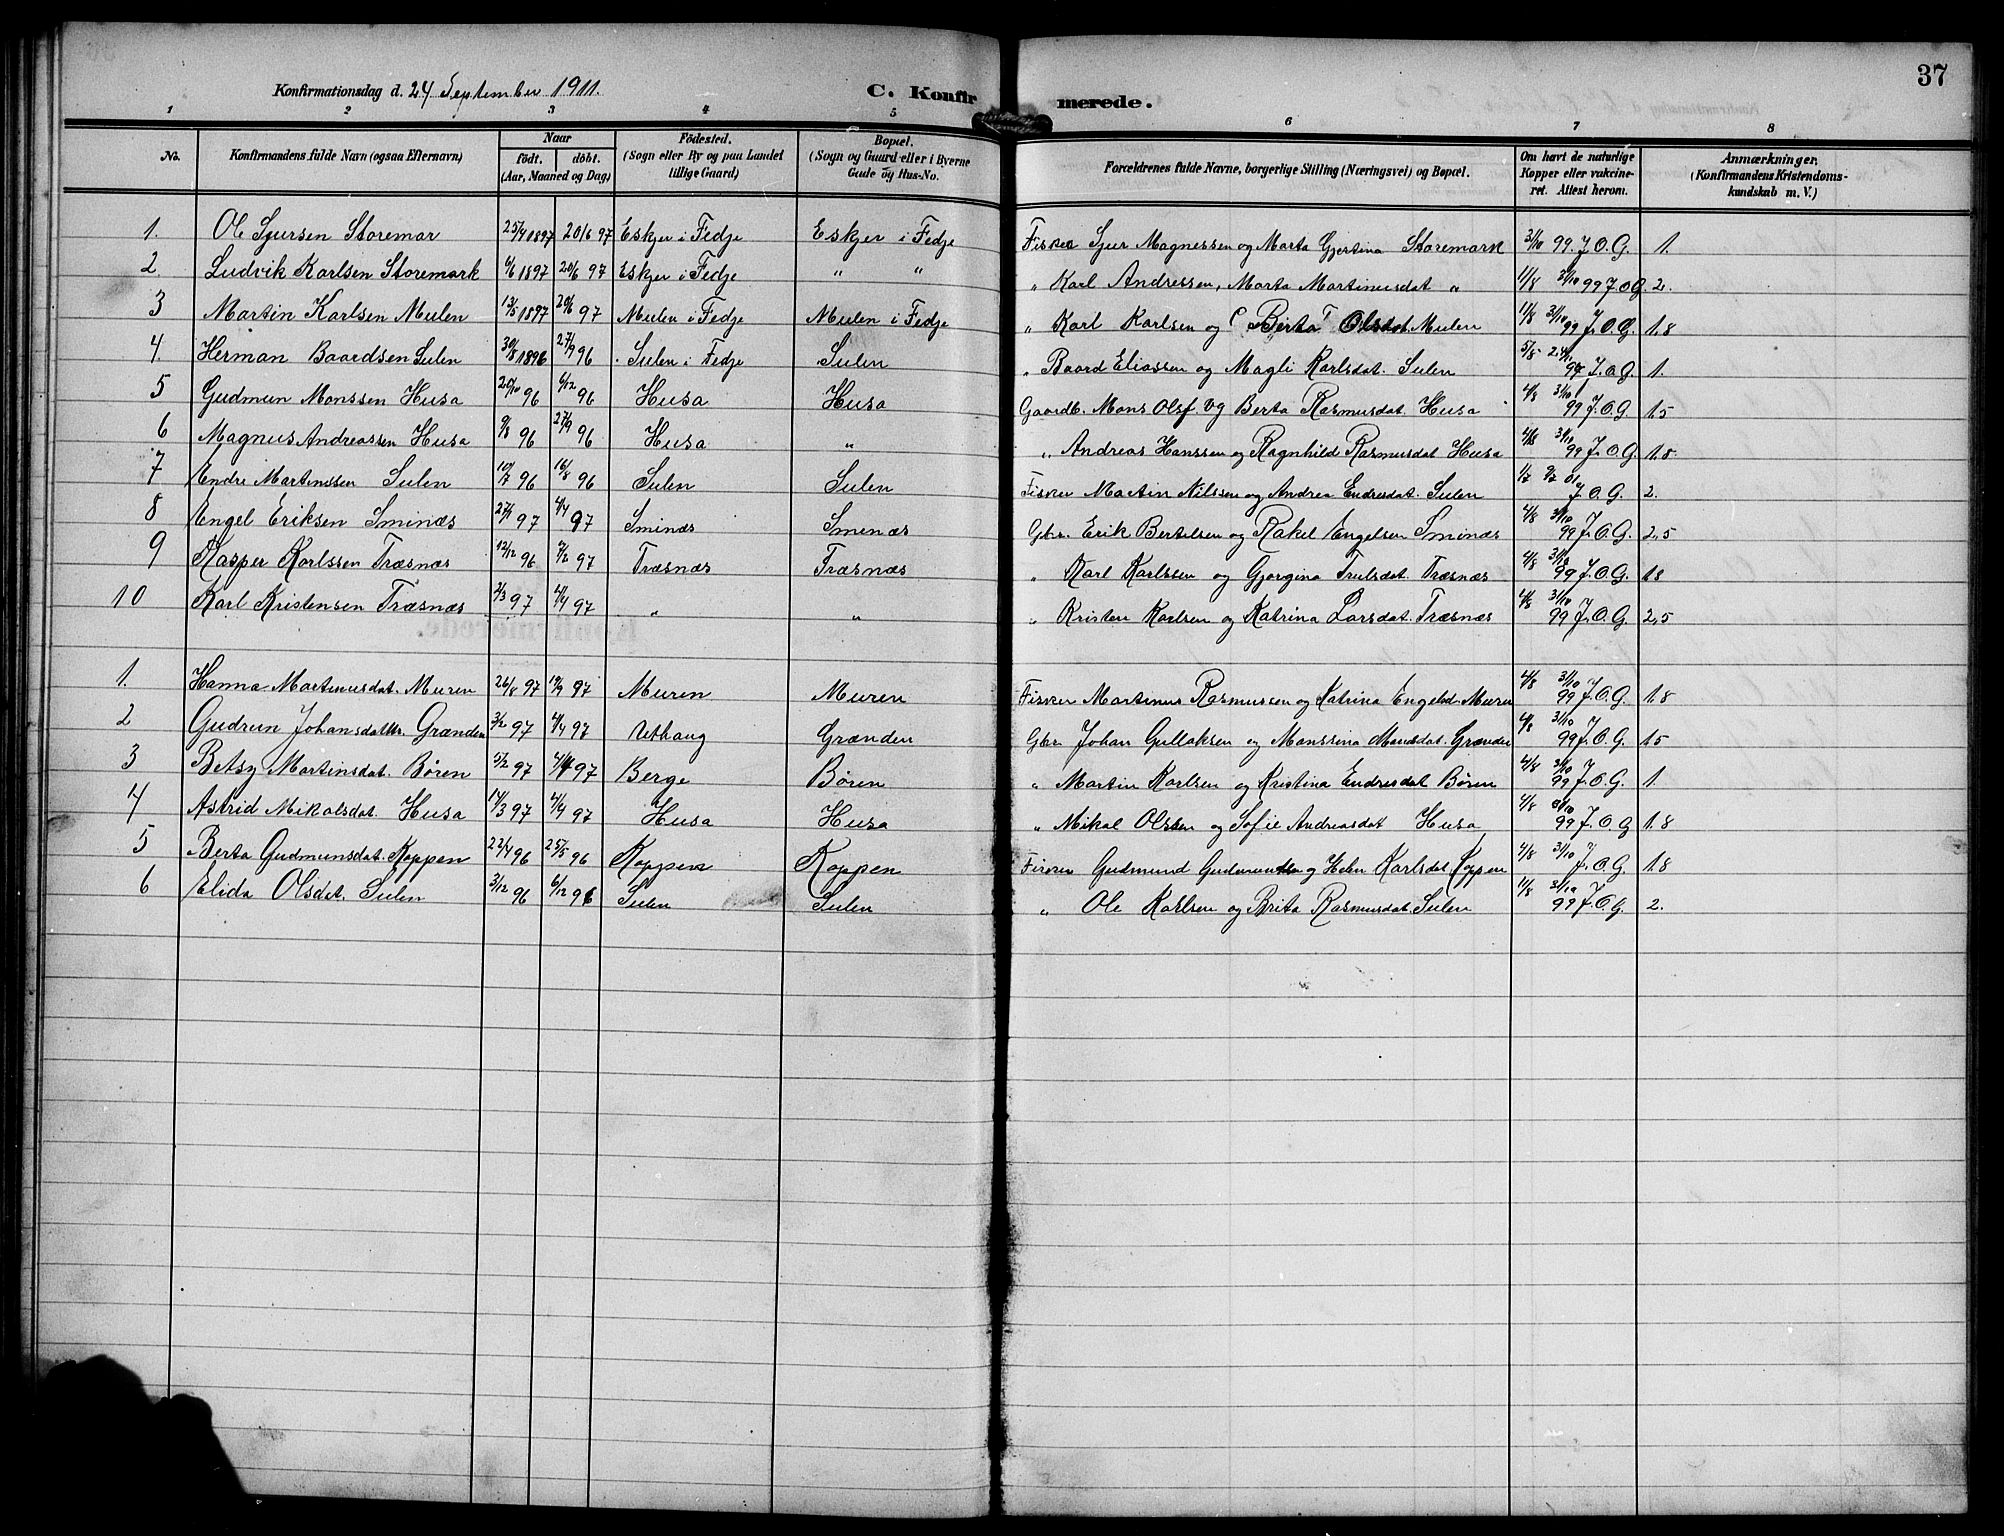 37
Konfirmationsdag d. 24 September 1911. C. Konfirmerede.
1 2 3 4 5 6 7 8
No. Konfirmandens fulde Navn (ogsaa Efternavn) Naar födt. döbt. (Aar, Maaned og Dag) Födested. (Sogn eller By og paa Landet tillige Gaard) Bopæl. (Sogn og Gaard eller i Byerne Gade og Hus-No. Forældrenes fulde Navne, borgerlige Stilling (Næringsvei) og Bopæl. Om havt de naturlige Kopper eller vakcineret. Attest herom. Anmærkninger. (Konfirmandens Kristendomskundskab m. V.)
1. Ole Sjursen Storemar 25/4 1897 20/6 97 Eskjer i Fedje Eskjer i Fedje Fisker Sjur Magnessen og Marta Gjertina Storemark 3/10 99. J.O.G. 1.
2. Ludvik Karlsen Storemark 6/6 1897 20/6 97 Eskjer i Fedje " " " Karl Andressen, Marta Martinusdat " 11/8 31/10 99 J.O.G. 2.
3 Martin Karlsen Mulen 13/5 1897 20/6 97 Mulen i Fedje Mulen i Fedje " Karl Karlsen og Berta Olsdat. Mulen 11/8 31/10 99 J.O.G. 1.8
4. Herman Baardsen Sulen 30/8 1896 27/9 96 Sulen i Fedje Sulen " Baard Eliassen og Magli Karlsdat. Sulen 5/8 24/10 99 J.O.G. 1.
5 Gudmun Monssen Husa 20/10 96 6/12 96 Husa Husa Gaardb. Mons Olsf og Berta Rasmusdat. Husa 4/8 31/10 99 J.O.G. 1.5
6 Magnus Andreassen Husa 9/8 96 27/9 96 Husa " " Andreas Hanssen og Ragnhild Rasmusdat Husa 4/8 31/10 99 J.O.G. 1.8
7 Endre Martinssen Sulen 10/7 96 16/8 96 Sulen Sulen Fisker Martin Nilssen og Andrea Endresdat. Sulen 1/7 9/7 01 J.O.G. 2.
8 Engel Eriksen Sminæs 27/1 97 4/4 97 Sminæs Sminæs Gbr. Erik Bertelsen og Rakel Engelsen Sminæs 4/8 31/10 99 J.O.G. 2,5
9 Kasper Karlssen Træsnæs 12/12 96 7/2 97 Træsnæs Træsnæs " Karl Karlssen og Gjorgina Trulsdat. Træsnæs 4/8 31/10 99 J.O.G. 1.8
10 Karl Kristensen Træsnæs 2/3 97 4/4 97 " " " Kristen Karlsen og Katrina Larsdat. Træsnæs 4/8 31/10 99 J.O.G. 2,5
1. Hanna Martinusdat. Muren 26/8 97 19/9 97 Muren Muren Fisker Martinus Rasmussen og Katrina Engelsd. Muren 4/8 31/10 99 J.O.G. 1.8
2 Gudrun Johansdatter Grænden 3/2 97 4/4 97 Uthaug Grænden Gbr. Johan Gullaksen og Monssina Monsdat. Grænden 4/8 31/10 99 J.O.G. 1.5
3 Betsy Martinsdat. Børen 5/2 97 4/4 97 Berge Børen " Martin Karlsen og Kristina Endresdat Børen 4/8 31/10 99 J.O.G. 1.
4 Astrid Mikalsdat. Husa 14/3 97 4/4 97 Husa Husa " Mikal Olssen og Sofie Andreasdat Husa 4/8 31/10 99 J.O.G 1.8
5 Berta Gudmunsdat. Koppen 22/4 96 25/5 96 Koppen Koppen Fisker Gudmund Gudmundsen og Helen Karlsdat. Koppen 4/8 31/10 J.O.G. 1.8
6 Elida Olsdat. Sulen 3/12 96 6/12 96 Sulen Sulen " Ole Karlsen og Brita Rasmusdat. Sulen 11/8 31/10 99 J.O.G. 2.